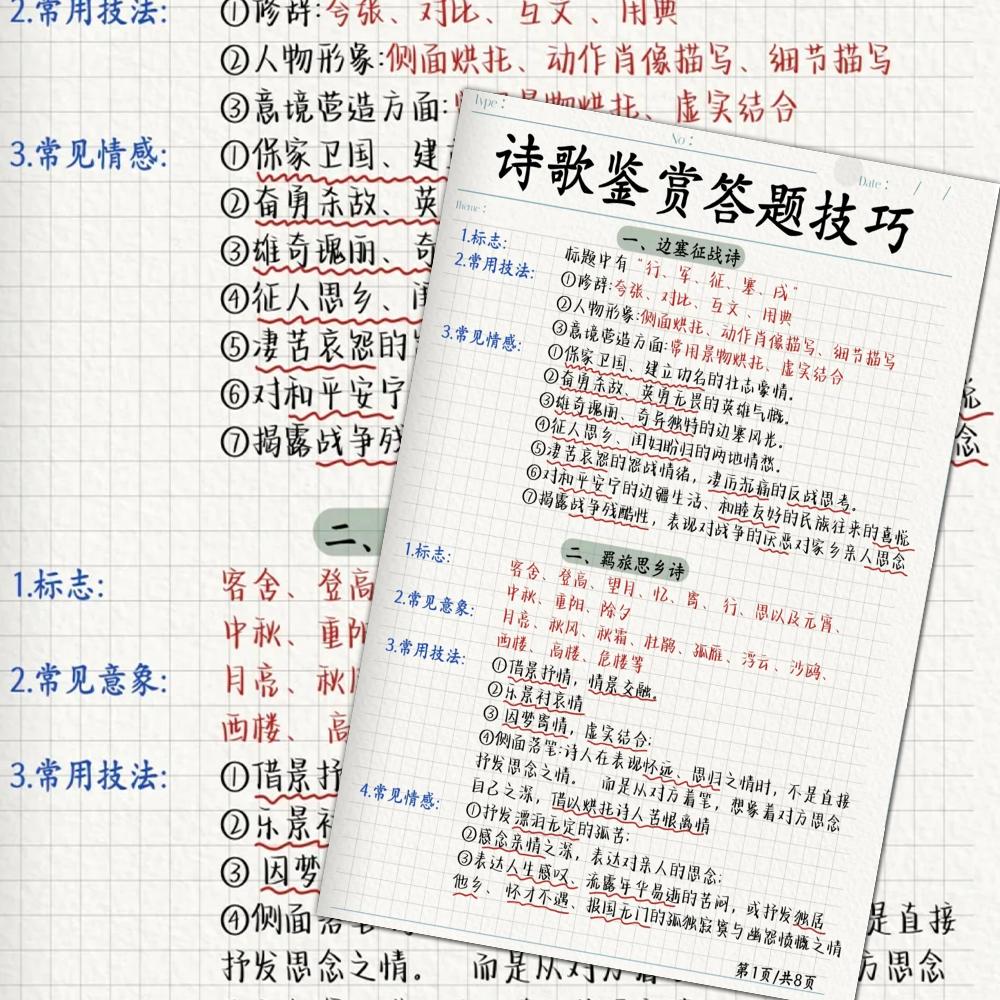 2.常用技法: ①修辞:夸张、对比、互文、用典
②人物形象:侧面烘托、动作肖像描写、细节描写
③意境营造方面:常用景物烘托、虚实结合
3.常见情感: ①保家卫国、建
②奋勇杀敌、英
③雄奇瑰丽、奇
④征人思乡、闺
⑤凄苦哀怨的
⑥对和平安宁
⑦揭露战争残
念
二、
1.标志: 客舍、登高
中秋、重阳
2.常见意象: 月亮、秋
西楼、高
3.常用技法: ①借景抒
②乐景衬
③ 因梦
④侧面落 是直接
抒发思念之情。 而是从对方着 方思念
Type:
No:
Date: / /
诗歌鉴赏答题技巧
Theme:
一、边塞征战诗
1.标志: 标题中有“行、军、征、塞、戍”
2.常用技法: ①修辞:夸张、对比、互文、用典
②人物形象:侧面烘托、动作肖像描写、细节描写
③意境营造方面:常用景物烘托、虚实结合
3.常见情感: ①保家卫国、建立功名的壮志豪情。
②奋勇杀敌、英勇无畏的英雄气概。
③雄奇瑰丽、奇异独特的边塞风光。
④征人思乡、闺妇盼归的两地情愁。
⑤凄苦哀怨的怨战情绪，凄历沉痛的反战思考。
⑥对和平安宁的边疆生活、和睦友好的民族往来的喜悦
⑦揭露战争残酷性，表现对战争的厌恶对家乡亲人思念
二、羁旅思乡诗
1.标志: 客舍、登高、望月、忆、寄、行、思以及元宵、
中秋、重阳、除夕
2.常见意象: 月亮、秋风、秋霜、杜鹃、孤雁、浮云、沙鸥、
西楼、高楼、危楼等
3.常用技法: ①借景抒情，情景交融。
②乐景衬哀情
③ 因梦寄情，虚实结合;
④侧面落笔:诗人在表现怀远、思归之情时，不是直接
抒发思念之情。 而是从对方着笔，想象着对方思念
自己之深，借以烘托诗人苦恨离情
4.常见情感: ①抒发漂泊无定的孤苦;
②感念亲情之深，表达对亲人的思念;
③表达人生感叹、流露年华易逝的苦闷，或抒发独居
他乡、怀才不遇、报国无门的孤独寂寞与幽怨愤慨之情
第1页/共8页